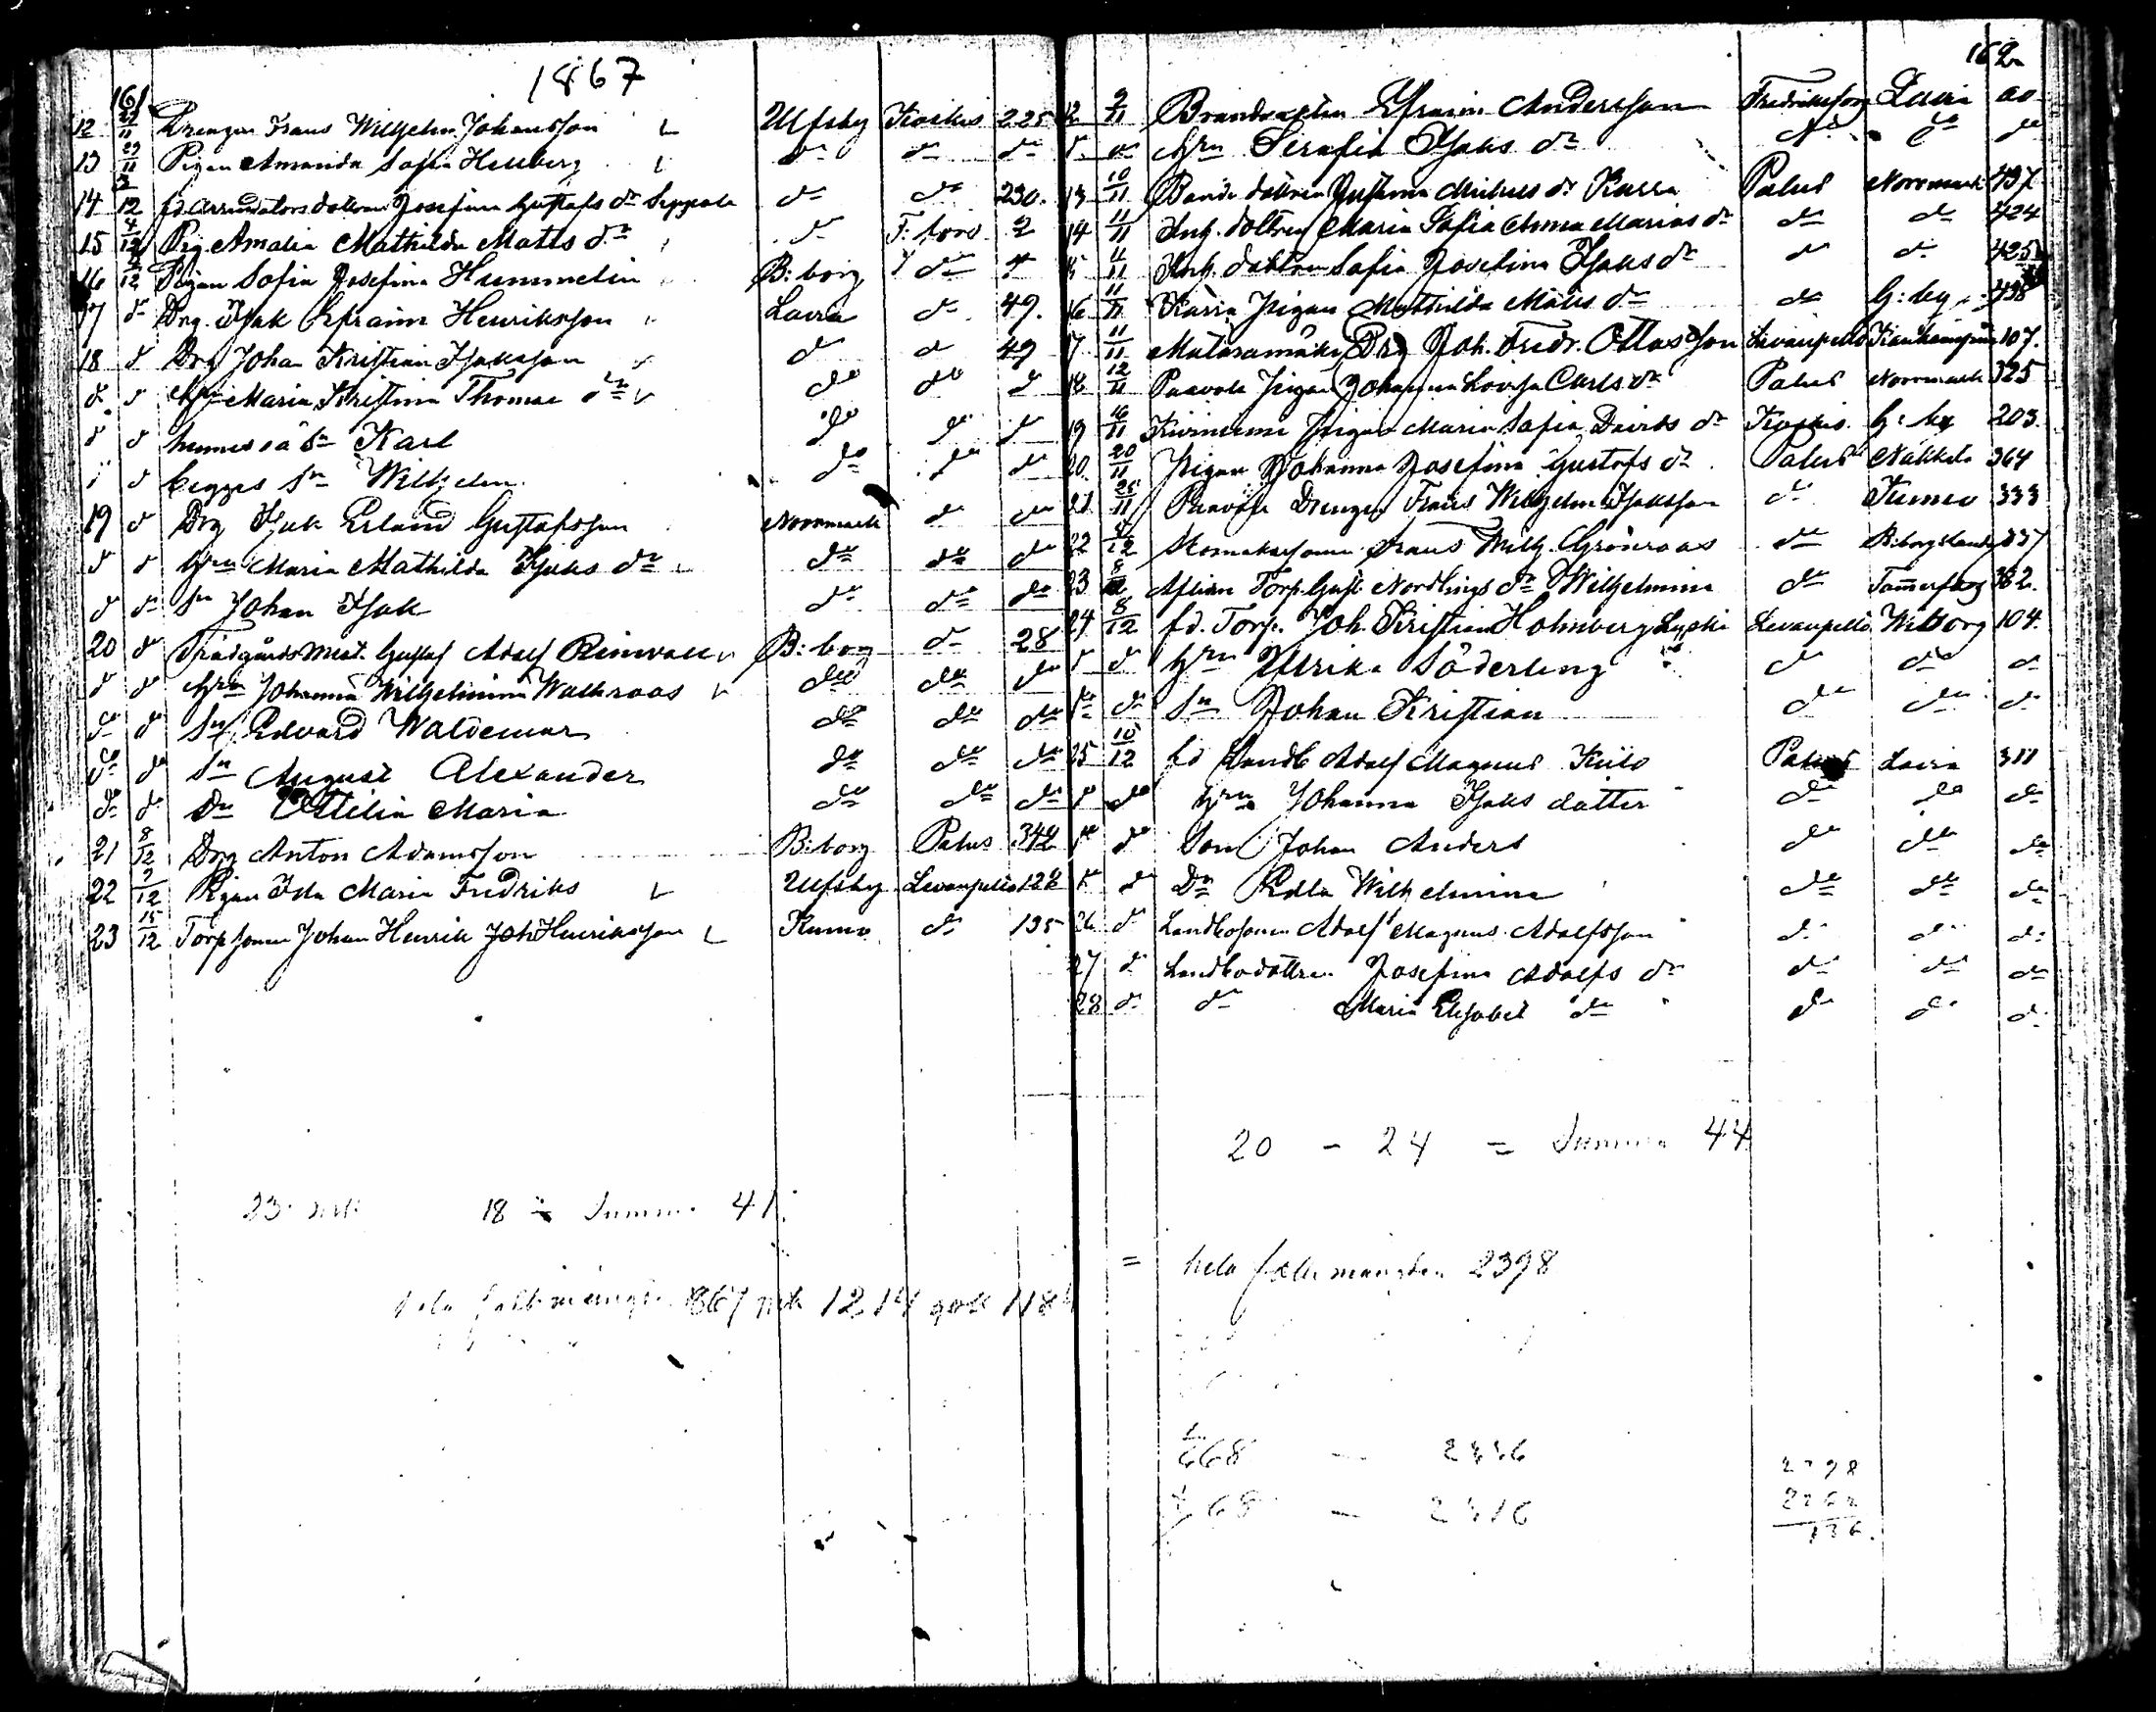 161
1867
12 27/11 Drengen Frans Wilhelm Johansson Ulfsby Koskis 225
13 29/11 Pigan Amanda Sofia Hellberg do do do
14 2/12 fd Arrendators dottren Josefina Gustafs dr Seppele do do 230.
15 4/12 Pig. Amalia Mathilda Matts dr do F: borg 2
16 4/12 Pigan Sofia Josefina Hummelin B: borg do 4
17 do Drg. Isak Efraim Henriksson Lavia do 49.
18 d Drg Johan Kristian Isaksson do do 49
d d Hu Maria Kristina Thomas dr do do d
d d hennes oä Sn Karl do do d
d d begges Sn Wilhelm do do do
19 d Drg Isak Erland Gustafsson Norrmark do do
d d Hru Maria Mathilda Isaks dr do do do
d do Sn Johan Isak do do do
20 d Trädgårdsmäst. Gustaf Adolf Reinvall B: borg do 28
d d Hru Johanna Wilhelmina Wallroos do do do
do d Sn Edvard Waldemar do do do
do do Sn August Alexander do do do
do d Dr Ottilia Maria do do do
21 8/12 Drg Anton Adamsson B: borg Palus 342
22 9/12 Pigan Ida Maria Fredriks Ulfsby Levanpelto 122
23 15/12 Torp sonen Johan Henrik Joh Henriksson Kumo do 135
18 Summa 41
hela folkmängden 867 mk 1214 qvk 118
162
12 9/11 Brandvakten Efraim Andersson Fredriksforg Lavia 60
d do Hru Serafia Isaks dr do do do
13 10/11 Bonde dottren Gustava Michels dr Karra Palus Norrmark 437
14 11/11 Inh. dottren Maria Sofia Anna Marias dr do do 424
15 11/11 Inh. dottren Sofia Josefina Isaks dr do do 425
16 11/11 Karra Pigan Mathilda Matts dr do H: by 438
17 11/11 Mataramäki Drg Joh. Fredr. Ottosson Levanpelto 107.
18 12/11 Paavola Pigan Johanna Lovisa Carls dr Palus Norrmark 325
19 16/11 Pigan Maria Sofia Davids dr Koskis. H: by 203.
20. 20/11 Pigan Johanna Josefina Gustafs dr Palus Nakkila 364
21 25/11 Paavola Drengen Frans Wilhelm Isaksson do Kumo 333
22 4/12 Skomakarsonen Frans Wilh. Grönroos do B: borg
23 8 Aflidne Torp. Gust. Nordlings dr Wilhelmina do Tammerfors 382.
24 8/12 fd. Torp. Joh. Kristian Holmberg Levanpelto Wiborg 104.
d d Hru Ulrika Söderling do do do
do do Sn Johan Kristian do do do
25 10/12 fd Landb Adolf Magnus Palus Lavia 311
d do Hru Johanna Isaks dotter do do do
do do Son Johan Anders do do do
do do Dr Edla Wilhelmina do do do
26 do Landbosonen Adolf Magnus Adolfsson do do do
27 do Landbodottren Josefina Adolfs dr do do do
28 do do Maria Elisabet do do do do
20 - 24 = Summa 44
= hela folkmängden 2398